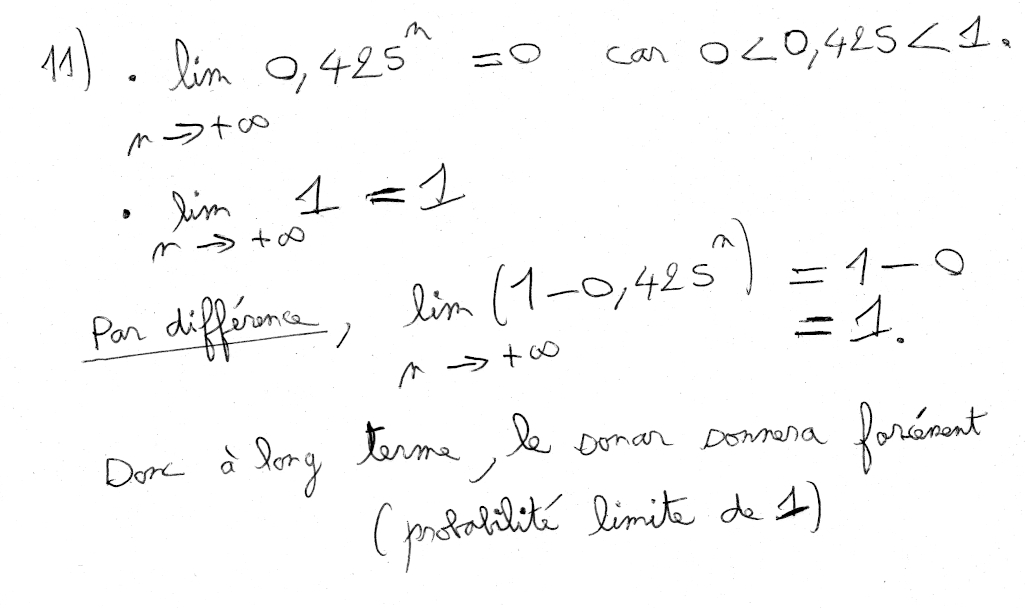 11) • lim 0,425^n = 0 car 0<0,425<1.
n → +∞
• lim 1 = 1
n → +∞
Par différence, lim (1-0,425^n) = 1-0
= 1.
n → +∞
Donc à long terme, le sonar sonnera forcément
(probabilité limite de 1)